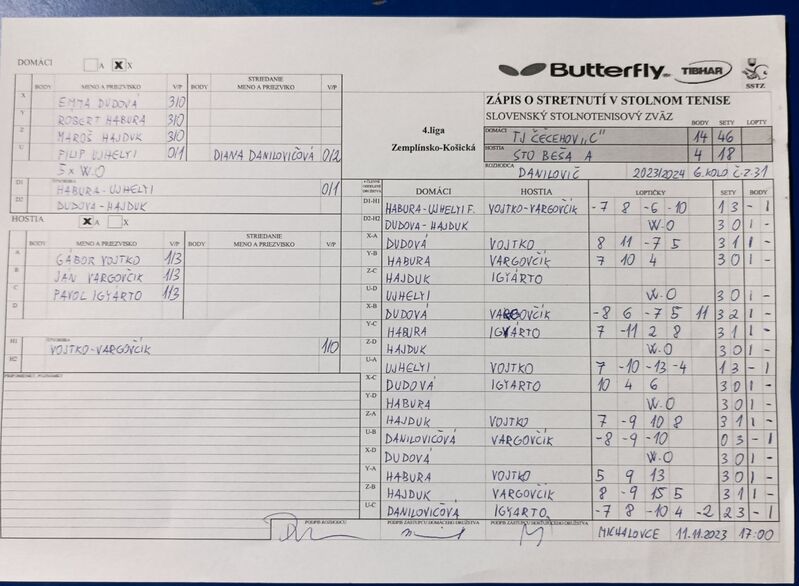 DOMÁCI A X X
Butterfly TIBHAR SSTZ
BODY MENO A PRIEZVISKO V/P BODY STRIEDANIE MENO A PRIEZVIKO V/P
X EMMA DUDOVÁ 3/0
Y ROBERT HABURA 3/0
Z MAROŠ HAJDUK 3/0
U FILIP UJHELYI 0/1 DIANA DANILOVIČOVÁ 0/2
5 x W.O
D1 HABURA-UJHELYI 0/1
D2 DUDOVA-HAJDUK
HOSTIA X A X
BODY MENO A PRIEZVISKO V/P BODY STRIEDANIE MENO A PRIEZVISKO V/P
A GÁBOR VOJTKO 1/3
B JÁN VARGOVČIK 1/3
C PAVOL IGYÁRTO 1/3
D
H1 VOJTKO-VARGOVČÍK 1/0
H2
4.liga
Zemplínsko-Košická
ZÁPIS O STRETNUTÍ V STOLNOM TENISE
SLOVENSKÝ STOLNOTENISOVÝ ZVÄZ BODY SETY LOPTY
DOMÁCI TJ ČEČEHOV „C" 14 46
HOSTIA STO BEŠA A 4 18
ROZHODCA DANILOVIČ 2023/2024 6.KOLO č.z.31
DOMÁCI HOSTIA LOPTIČKY SETY BODY
D1-H1 HABURA-UJHELYI F. VOJTKO-VARGOVČÍK -7 8 -6 -10 1 3 - 1
D2-H2 DUDOVA-HAJDUK W.O 3 0 1 -
X-A DUDOVÁ VOJTKO 8 11 -7 5 3 1 1 -
Y-B HABURA VARGOVČÍK 7 10 4 3 0 1 -
Z-C HAJDUK IGYÁRTO
U-D UJHELYI W.O 3 0 1 -
X-B DUDOVÁ VARGOVČÍK -8 6 -7 5 11 3 2 1 -
Y-C HABURA IGYÁRTO 7 -11 2 8 3 1 1 -
Z-D HAJDUK W.O 3 0 1 -
U-A UJHELYI VOJTKO 7 -10 -13 -4 1 3 - 1
X-C DUDOVÁ IGYÁRTO 10 4 6 3 0 1 -
Y-D HABURA W.O 3 0 1 -
Z-A HAJDUK VOJTKO 7 -9 10 8 3 1 1 -
U-B DANILOVIČOVÁ VARGOVČÍK -8 -9 -10 0 3 - 1
X-D DUDOVÁ W.O 3 0 1 -
Y-A HABURA VOJTKO 5 9 13 3 0 1 -
Z-B HAJDUK VARGOVČÍK 8 -9 15 5 3 1 1 -
U-C DANILOVIČOVÁ IGYÁRTO -7 8 -10 4 -2 2 3 - 1
PODPIS ROZHODCU PODPIS ZÁSTUPCU DOMÁCEHO DRUŽSTVA PODPIS ZÁSTUPCU HOSŤUJÚCEHO DRUŽSTVA MICHALOVCE 11.11.2023 17:00